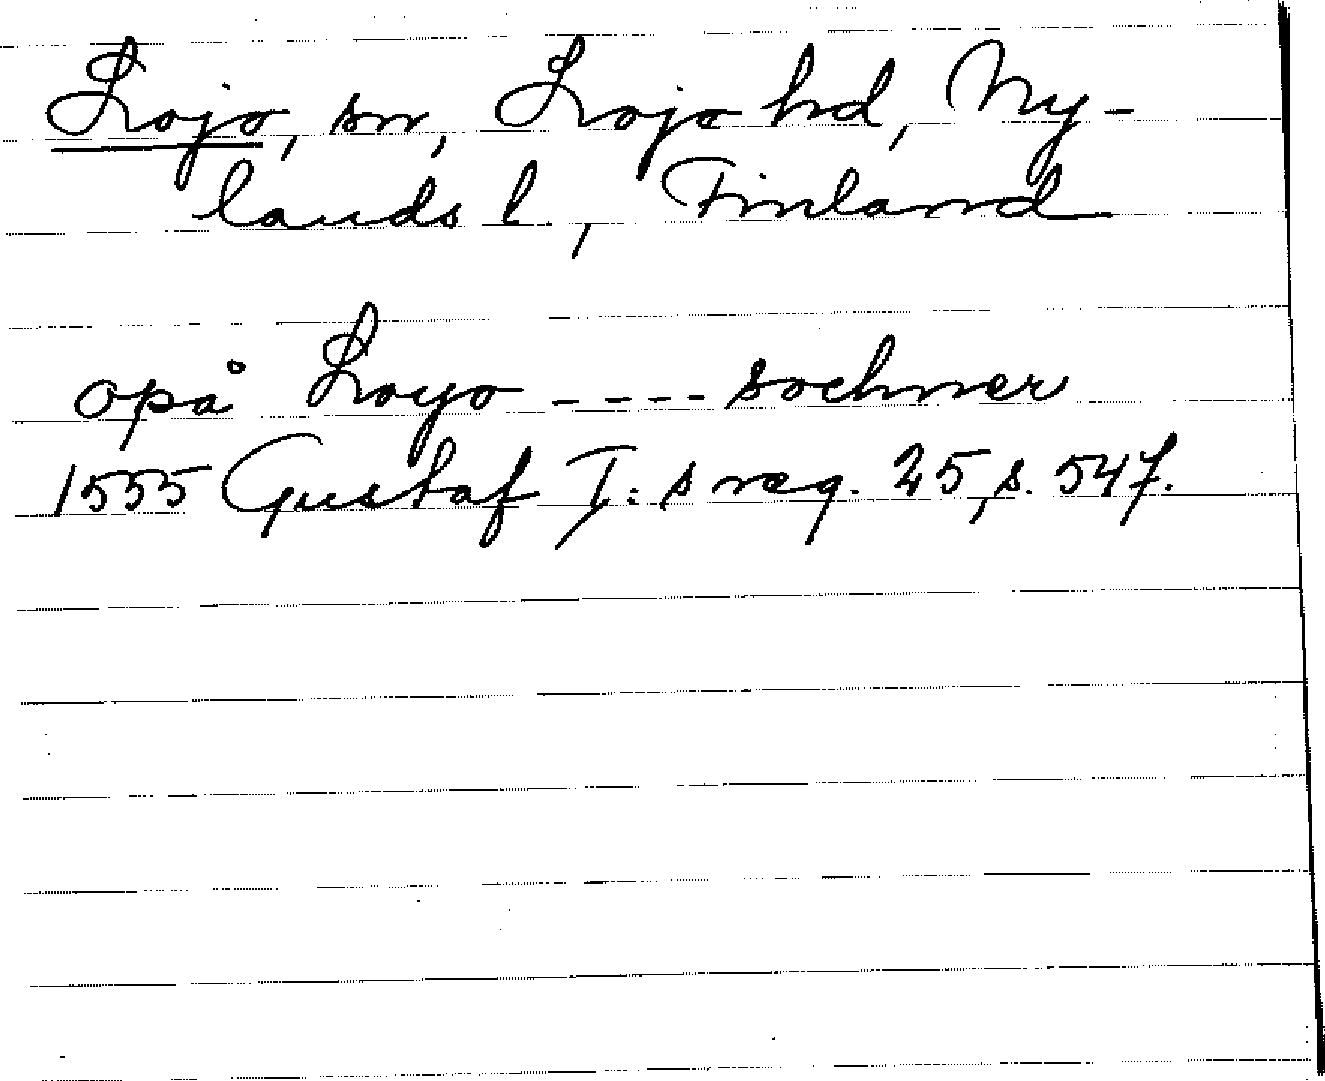 Lojo, sn, Lojo hd, Ny-
lands l., Finland
opå Loyo ---- sochner
1555 Gustaf I:s reg. 25, s. 547.